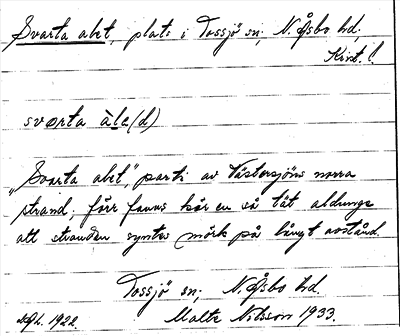 Svarta alet, plats i Tossjö sn, N. Åsbo hd,
Krist. l.
svarta àle(d)
"Svarta alet", parti av Västersjöns norra
strand; förr fanns här en så tät aldunge
att stranden syntes mörk på långt avstånd.
Tossjö sn; N. Åsbo hd.
1922. Malte Nilsson 1933.